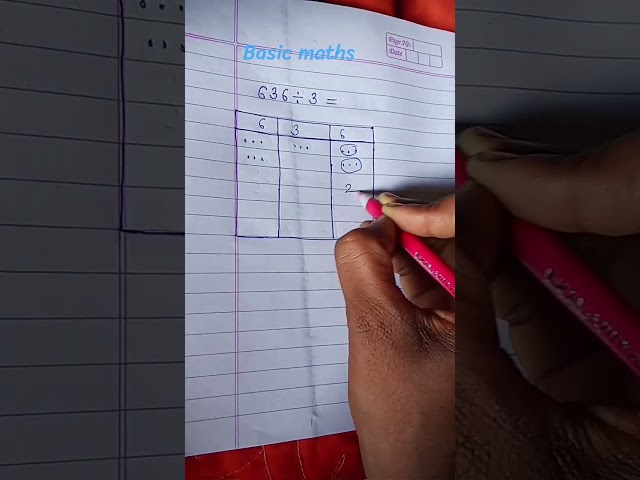 Basic maths
Page No.
Date
636 ÷ 3 =
6 3 6
2